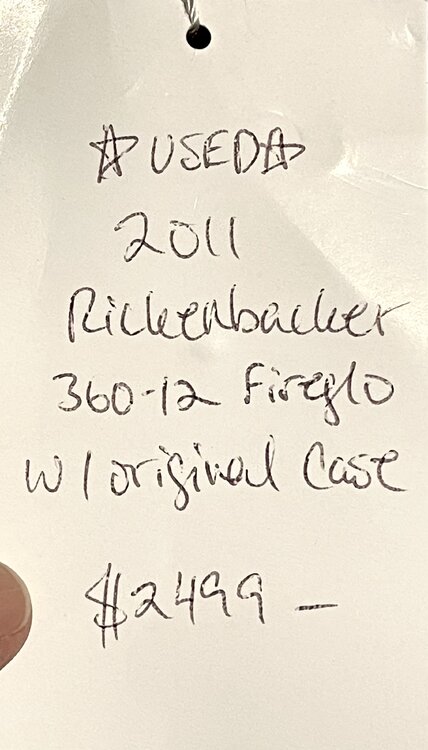 ☆USED☆
2011
Rickenbacker
360-12 Fireglo
w/original Case
$2499 —